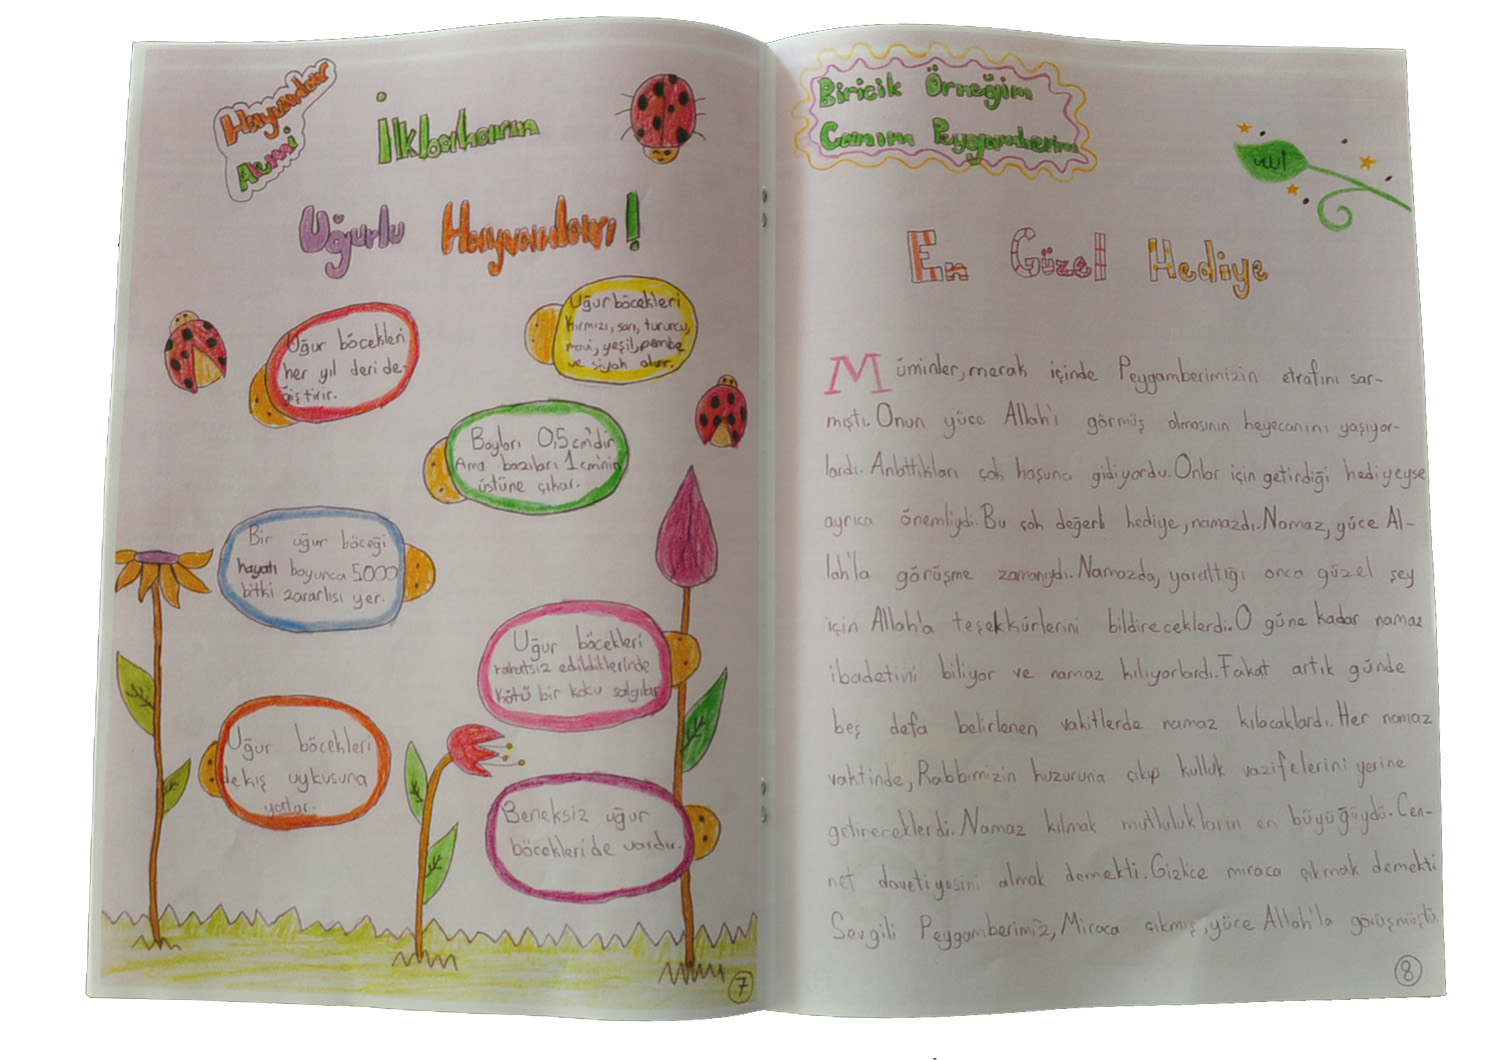 Hayvanlar
Alemi
İlkbaharın
Uğurlu Hayvanları!
Uğur böcekleri
her yıl deri de-
ğiştirir.
Uğur böcekleri
kırmızı, sarı, turuncu,
mavi, yeşil, pembe
ve siyah olur.
Boyları 0,5 cm'dir
Ama bazıları 1 cm'nin
üstüne çıkar.
Bir uğur böceği
hayatı boyunca 5000
bitki zararlısı yer.
Uğur böcekleri
rahatsız edildiklerinde
kötü bir koku salgılar
Uğur böcekleri
de kış uykusuna
yatar.
Beneksiz uğur
böcekleri de vardır.
7
Biricik Örneğim
Canım Peygamberim
En Güzel Hediye
Müminler, merak içinde Peygamberimizin etrafını sar-
mıştı. Onun yüce Allah'ı görmüş olmasının heyecanını yaşıyor-
lardı. Anlattıkları çok hoşuna gidiyordu. Onlar için getirdiği hediyeyse
ayrıca önemliydi. Bu çok değerli hediye, namazdı. Namaz, yüce Al-
lah'la görüşme zamanıydı. Namazda, yarattığı onca güzel şey
için Allah'a teşekkürlerini bildireceklerdi. O güne kadar namaz
ibadetini biliyor ve namaz kılıyorlardı. Fakat artık günde
beş defa belirlenen vakitlerde namaz kılacaklardı. Her namaz
vaktinde, Rabbimizin huzuruna çıkıp kulluk vazifelerini yerine
getireceklerdi. Namaz kılmak mutlulukların en büyüğüydü. Cen-
net davetiyesini almak demekti. Gizlice miraca çıkmak demekti
Sevgili Peygamberimiz, Miraca çıkmış, yüce Allah'la görüşmüştü.
8